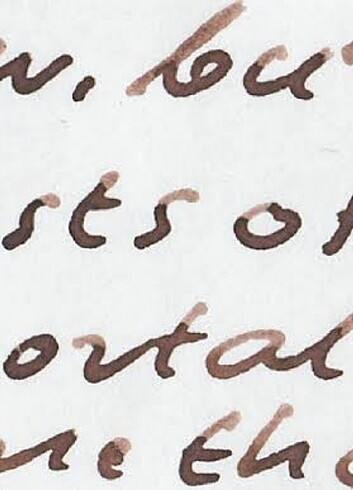 w, bu
sts of
ortal
ne th